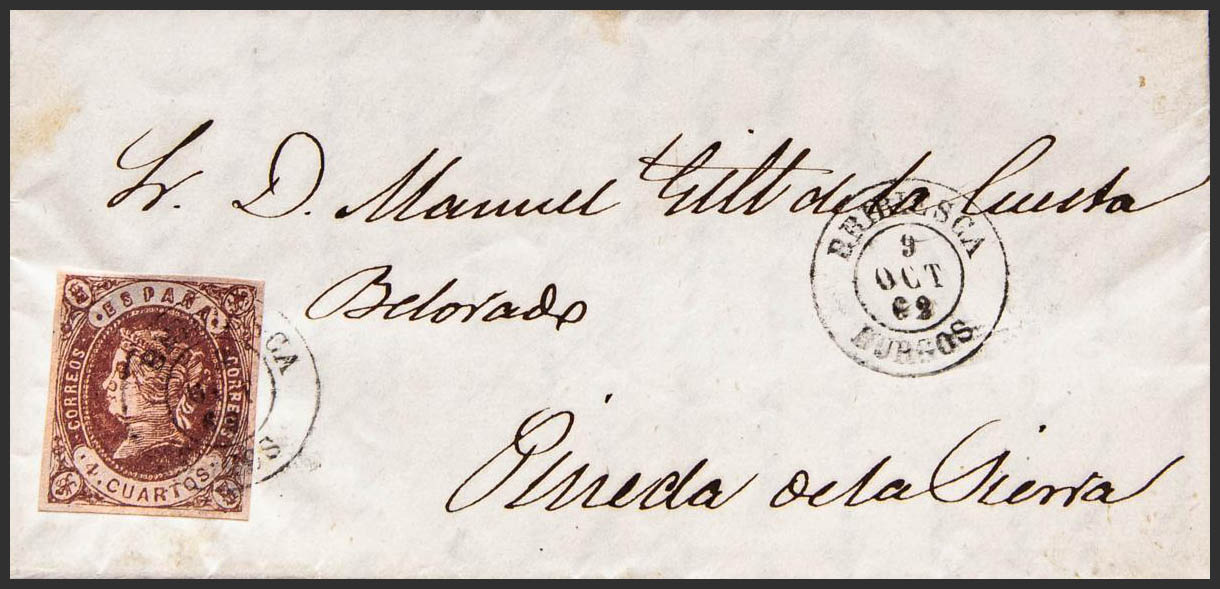 Sr. D. Manuel Gill de la Cuesta
BRIBIESCA
9
OCT
62
BURGOS
Belorado
Pineda de la Sierra
ESPAÑA
CORREOS
CORREOS
4. CUARTOS